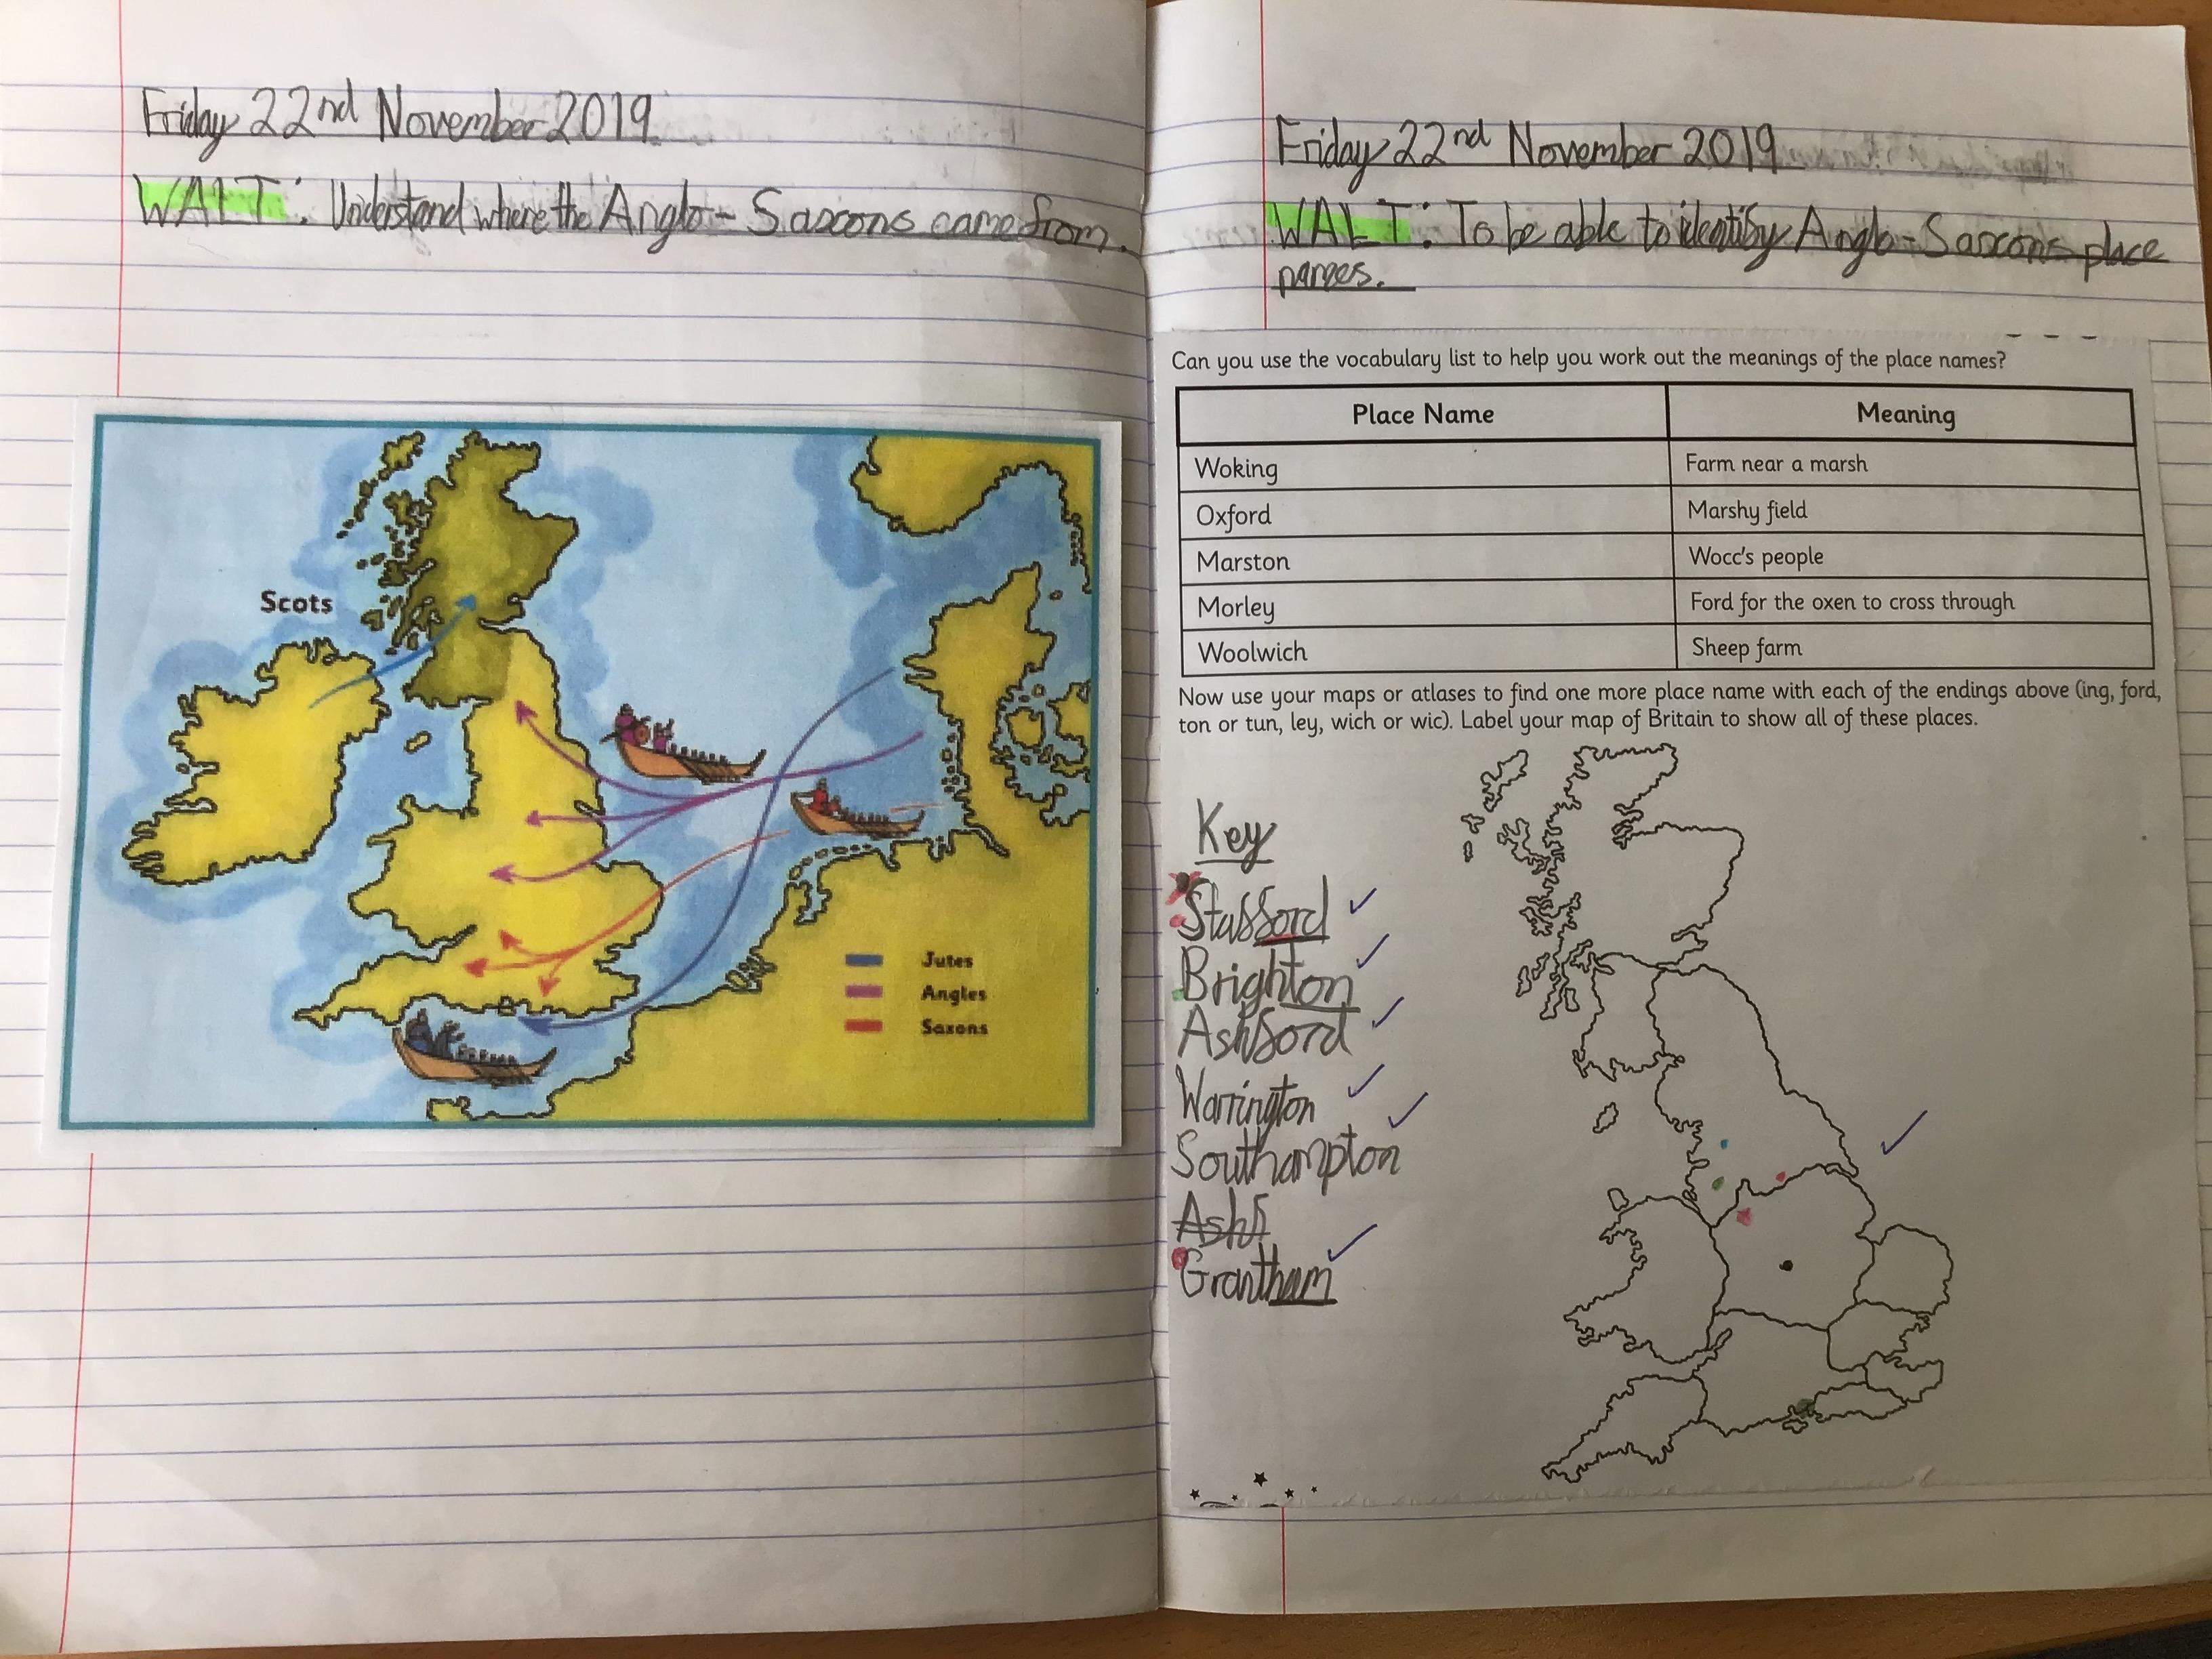 Friday 22nd November 2019
WALT: Understand where the Anglo-Saxons came from.
Scots
Jutes
Angles
Saxons
Friday 22nd November 2019
WALT: To be able to identify Anglo-Saxons place
names.
Can you use the vocabulary list to help you work out the meanings of the place names?
Place Name Meaning
Woking Farm near a marsh
Oxford Marshy field
Marston Wocc's people
Morley Ford for the oxen to cross through
Woolwich Sheep farm
Now use your maps or atlases to find one more place name with each of the endings above (ing, ford,
ton or tun, ley, wich or wic). Label your map of Britain to show all of these places.
Key
Stafford
Brighton
Ashford
Warrington
Southampton
Ashf
Grantham